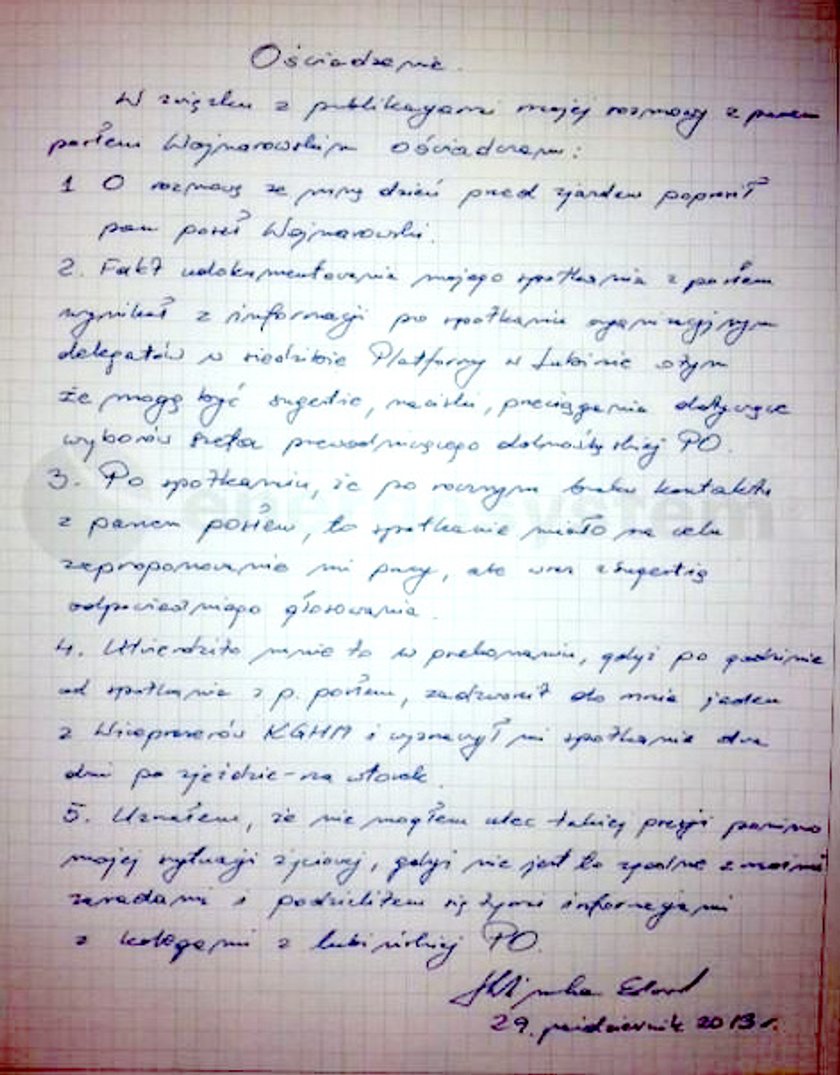 Oświadczenie.
W związku z publikacjami mojej rozmowy z panem
posłem Wojnarowskim oświadczam:
1 O rozmowę ze mną dzień przed zjazdem poprosił
pan poseł Wojnarowski.
2. Fakt udokumentowania mojego spotkania z posłem
wynikał z informacji po spotkaniu organizacyjnym
delegatów w siedzibie Platformy w Lubinie o tym
że mogą być sugestie, naciski, przeciągania dotyczące
wyborów szefa przewodniczącego dolnośląskiej PO.
3. Po spotkaniu, że po rocznym braku kontaktu
z panem posłem, to spotkanie miało na celu
zaproponowanie mi pracy, ale wraz z sugestią
odpowiedniego głosowania.
4. Utwierdziło mnie to w przekonaniu, gdyż po godzinie
od spotkania z p. posłem, zadzwonił do mnie jeden
z Wiceprezesów KGHM i wyznaczył mi spotkanie dwa
dni po zjeździe - na wtorek.
5. Uznałem, że nie mogłem ulec takiej presji pomimo
mojej sytuacji życiowej, gdyż nie jest to zgodne z moimi
zasadami i podzieliłem się tymi informacjami
z kolegami z lubińskiej PO.
Edward
29. październik 2013 r.
energosystem